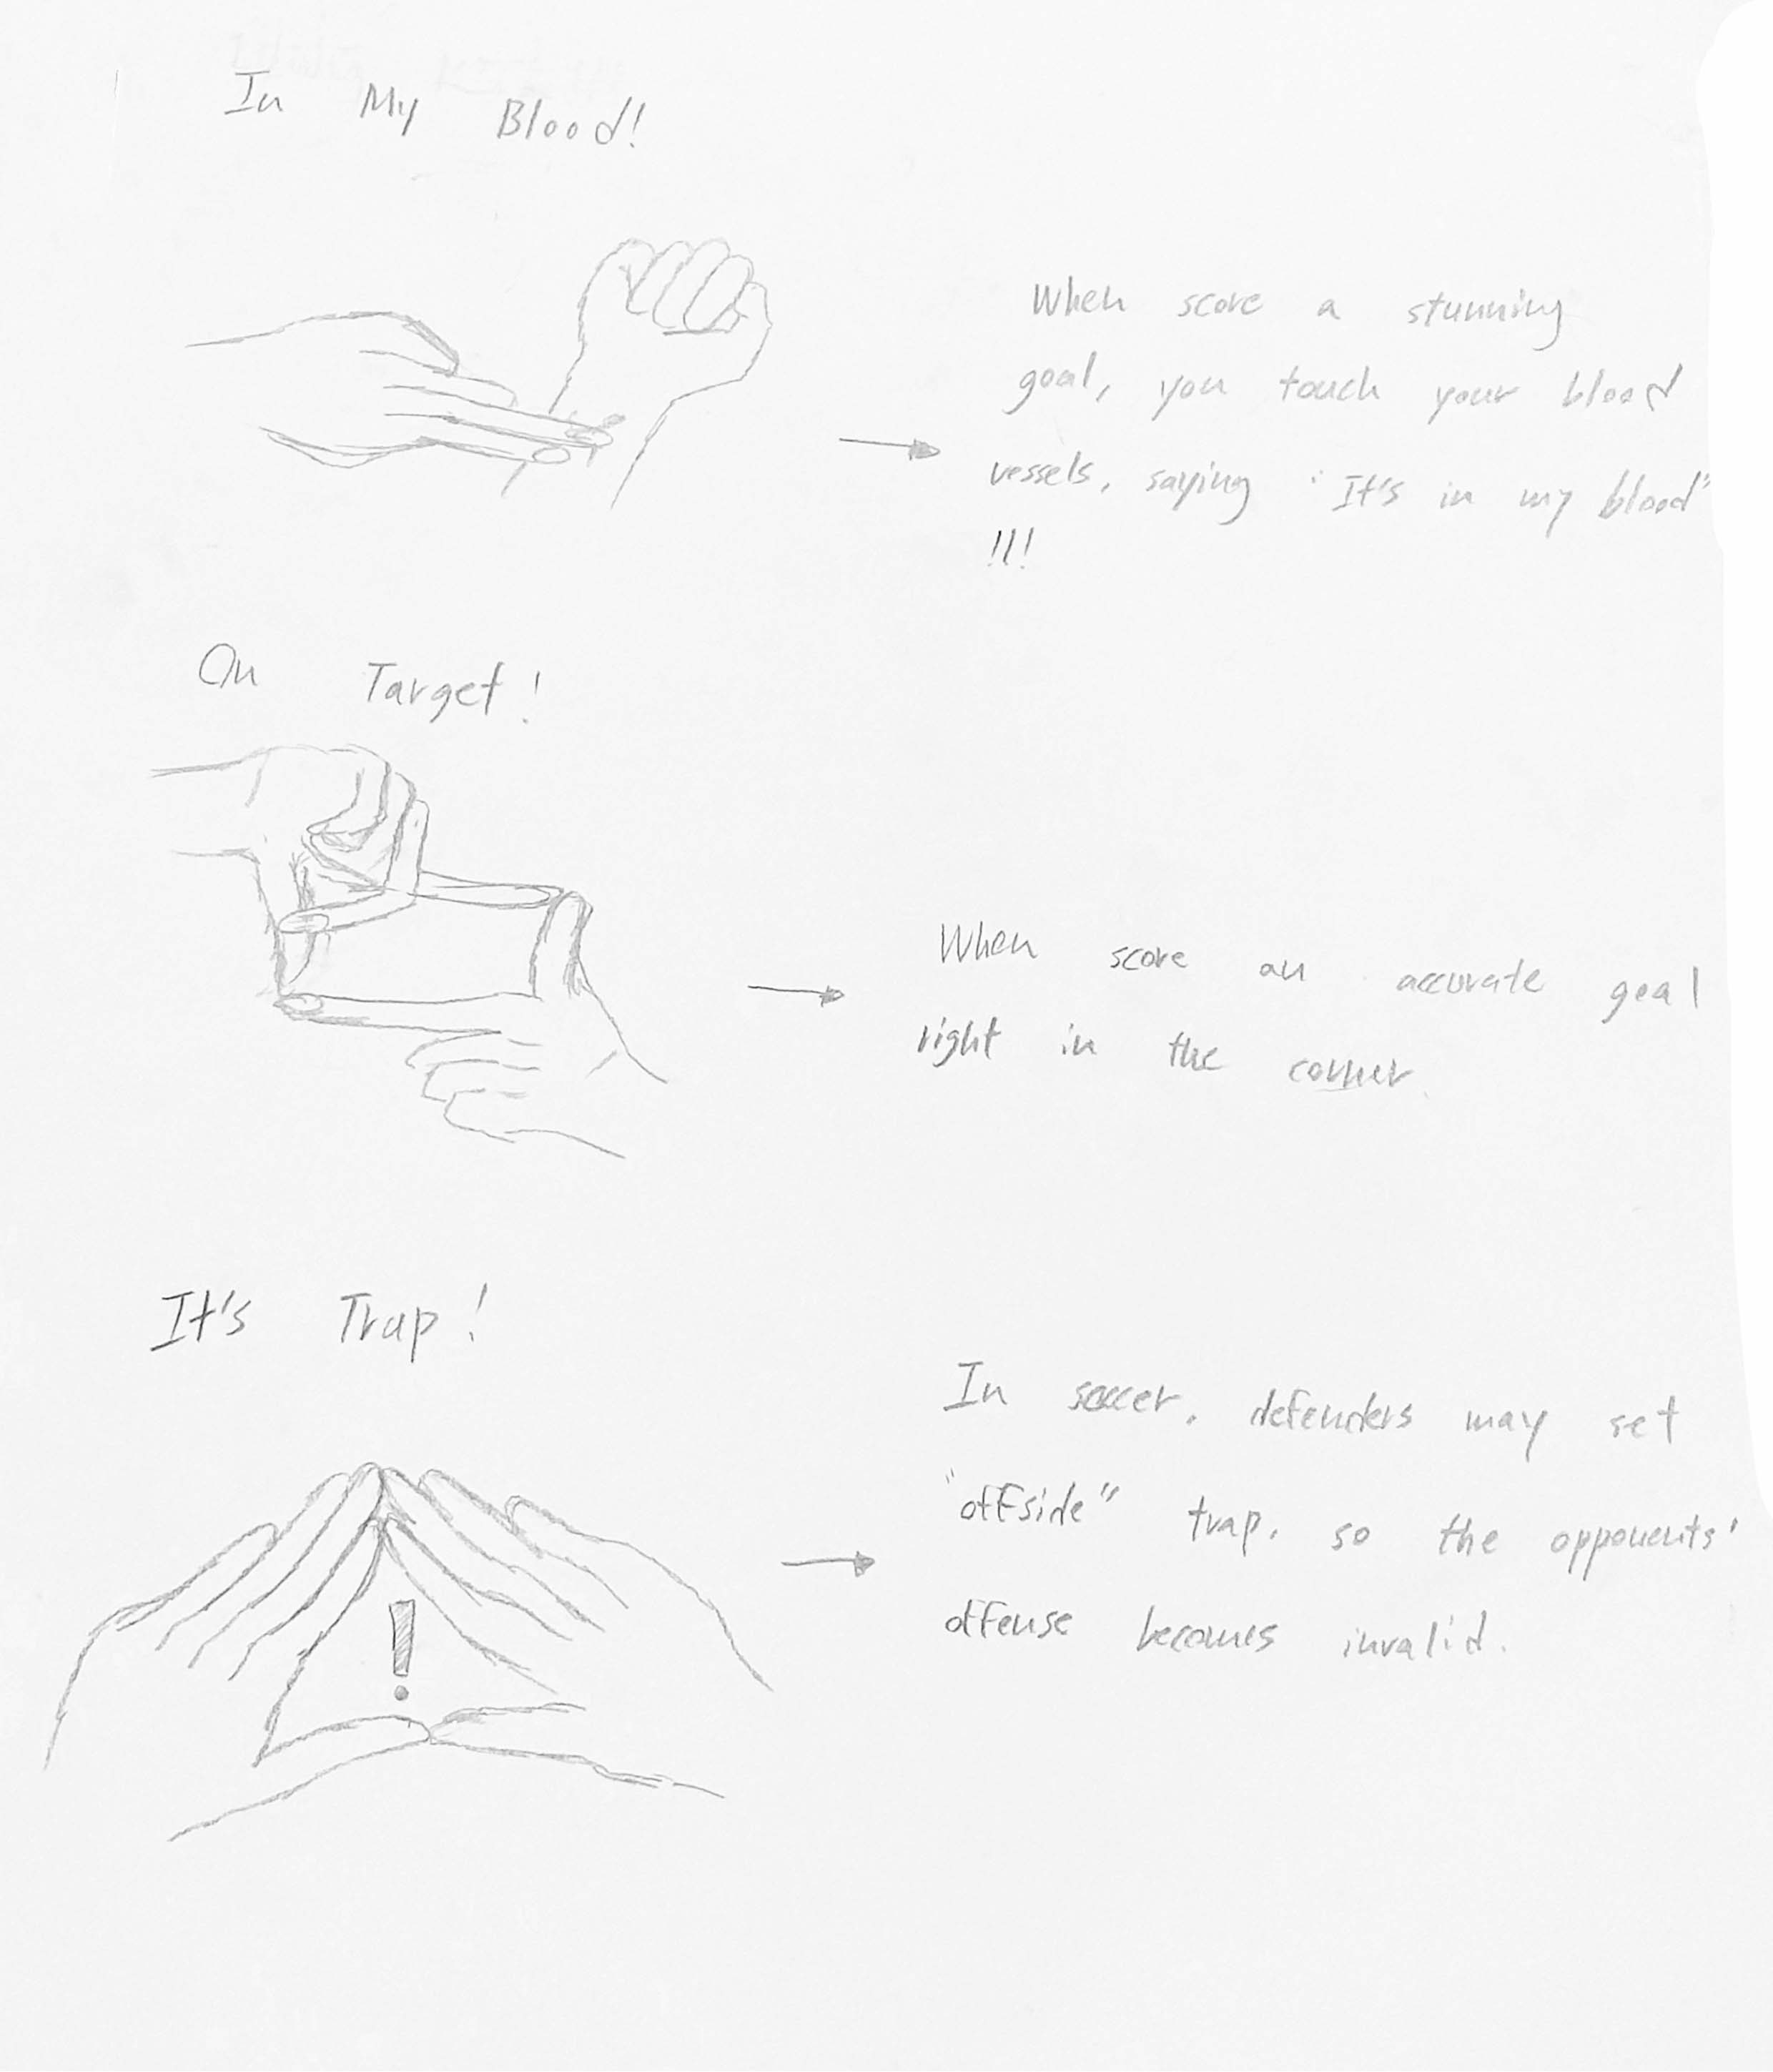 In My Blood!
When score a stunning
goal, you touch your blood
vessels, saying "It's in my blood"
!!!
On Target!
When score an accurate goal
right in the corner.
It's Trap!
In soccer, defenders may set
"offside" trap, so the opponents'
offense becomes invalid.
!